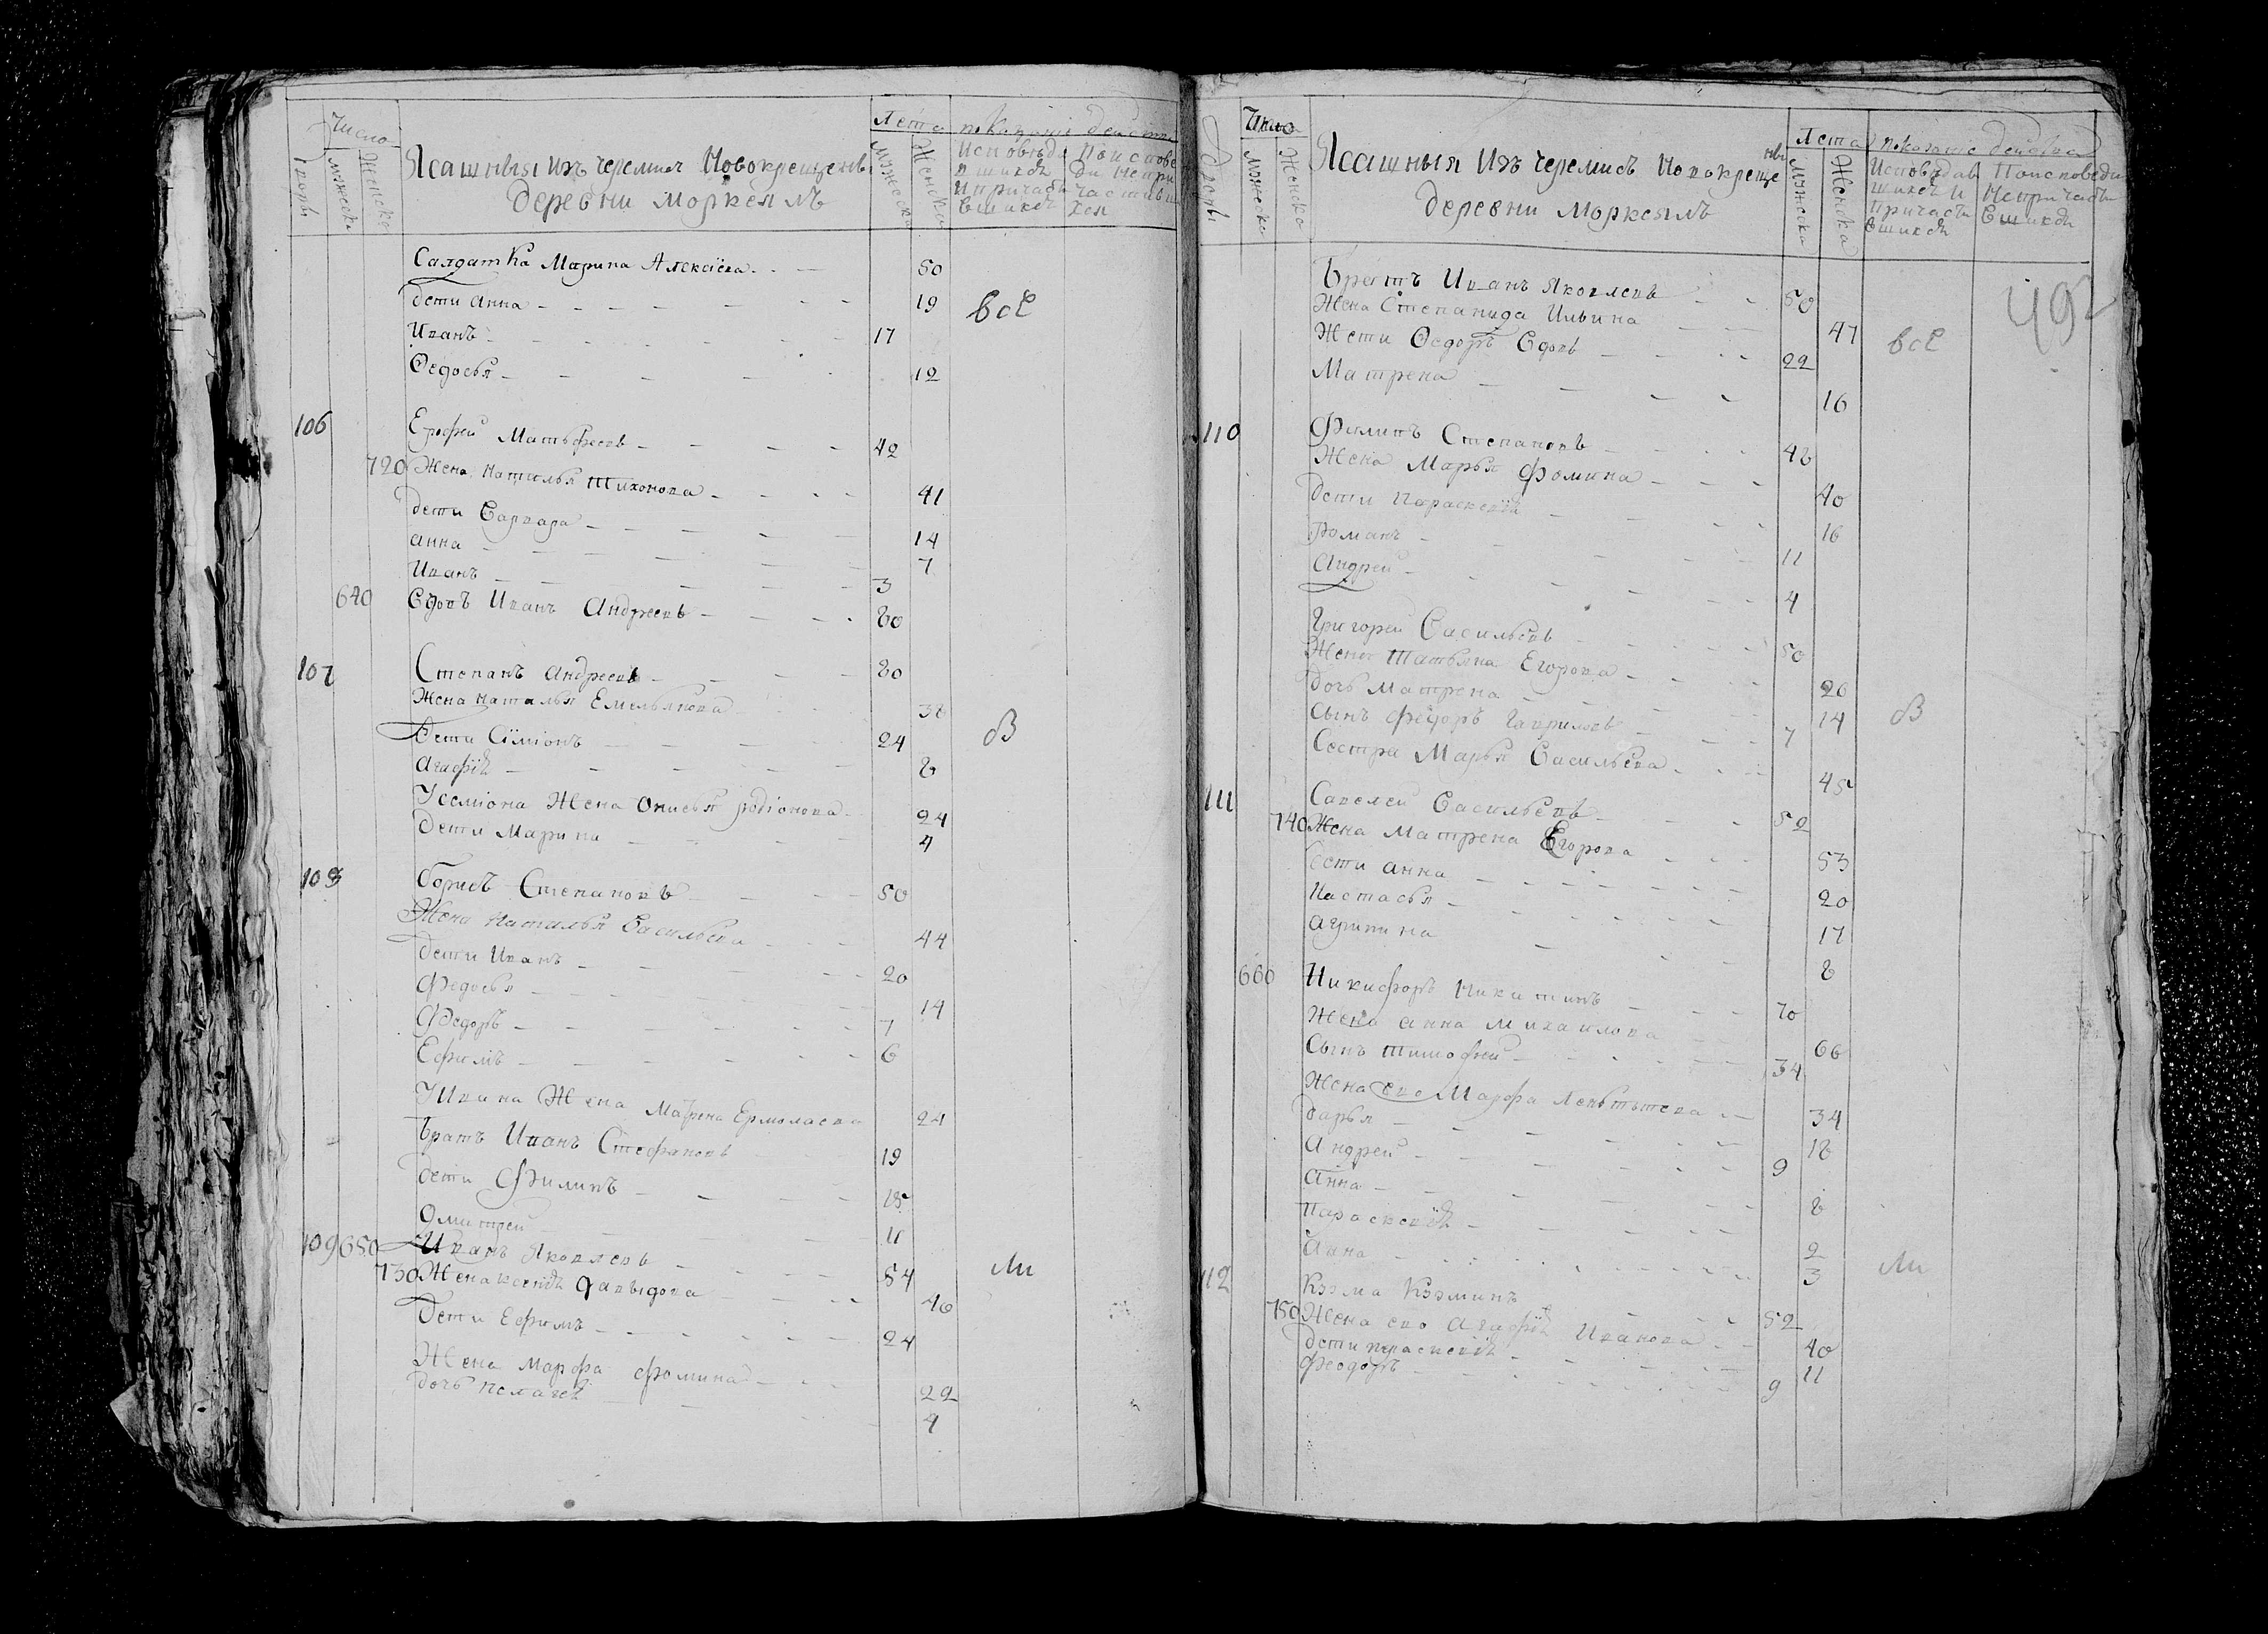 Число
Лета показаніе действа
дворы
мужеска
женска
Ясашныя изъ черемисъ Новокрещены
деревни Моркеялъ
мужеска
женска
Исповѣда
вшихсѧ
и причасти
вшихсѧ
Поиспове
ди непри
частивши
хся
Салдатка Марина Алексіева 50
дети Анна 19 всѣ
Иванъ 17
Ѳедосья 12
106 Ерофеи Матьфеевъ 42
720 Жена Наталья Тихонова 41
дети Варвара 14
анна 7
Иванъ 3
640 Вдовъ Иванъ Андреевъ 80
107 Степанъ андреевъ 80
Жена наталья Емельянова 38
Дети Сіміонъ 24 В
Агафія 8
У Семіона Жена Онисья родіонова 24
дети Марина 4
108 Борисъ Степановъ 50
Жена Наталья Васильева 44
дети Иванъ 20
Федосья 14
Федоръ 7
Ефимъ 6
У Ивана Жена Матрена Ермолаева 24
братъ Иванъ Стефановъ 19
дети Филипъ 15
Дмитреи 11
109 650 Иванъ Яковлевъ 54 ли
730 Жена ксенія Давыдова 46
Дети Ефимъ 24
Жена Марфа фомина 22
дочь пелагея 4
Число
Лета показаніе действа
дворы
мужеска
женска
Ясашныя Изъ черемисъ Новокреще
ны
деревни Моркеялъ
мужеска
женска
Исповѣдав
шихсѧ и
причасти
вшихсѧ
Поисповеди
Непричасти
вшихсѧ
492
братъ Иванъ Яковлевъ 50
Жена Степанида Ильина 47 всѣ
Жети Ѳедоръ Вдовъ 22
Матрена 16
110 Филипъ Степановъ 48
Жена Марья фомина 40
дети параскевія 16
Романъ 11
Андреи 4
Григореи Васильевъ 50
Жена Татьяна Егорова 26
дочь Матрена 14 В
Сынъ федоръ Гаврилов 7
Сестра Марья Васильева 45
111 Савелеи Васильевъ 52
740 Жена Матрена Егорова 53
дети анна 20
Настасья 17
агрипина 8
660 Никифоръ Никитинъ 70
Жена анна михаилова 66
Сынъ тимофеи 34
Жена ево Марфа Леньтьтева 34
Дарья 18
Андреи 9
анна 8
параскевія 2
Анна 3 ли
112 Козма Козминъ 52
750 Жена ево Агафія Иванова 40
дети параскевія 11
Феодоръ 9